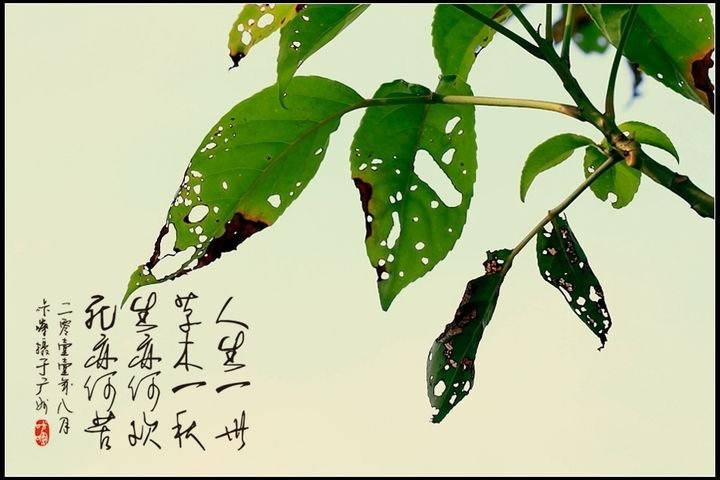 人生一世
草木一秋
生亦何欢
死亦何苦
二零壹壹年八月
摄于广州